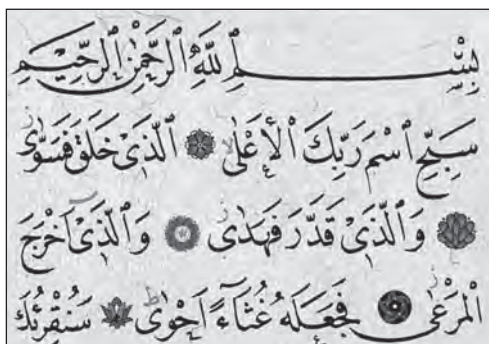 بِسْمِ ٱللَّهِ ٱلرَّحْمٰنِ ٱلرَّحِيمِ
سَبِّحِ ٱسْمَ رَبِّكَ ٱلْأَعْلَى ٱلَّذِى خَلَقَ فَسَوّٰى
وَٱلَّذِى قَدَّرَ فَهَدٰى وَٱلَّذِىٓ اَخْرَجَ
ٱلْمَرْعٰى فَجَعَلَهُ غُثَٓاءً اَحْوٰى سَنُقْرِئُكَ